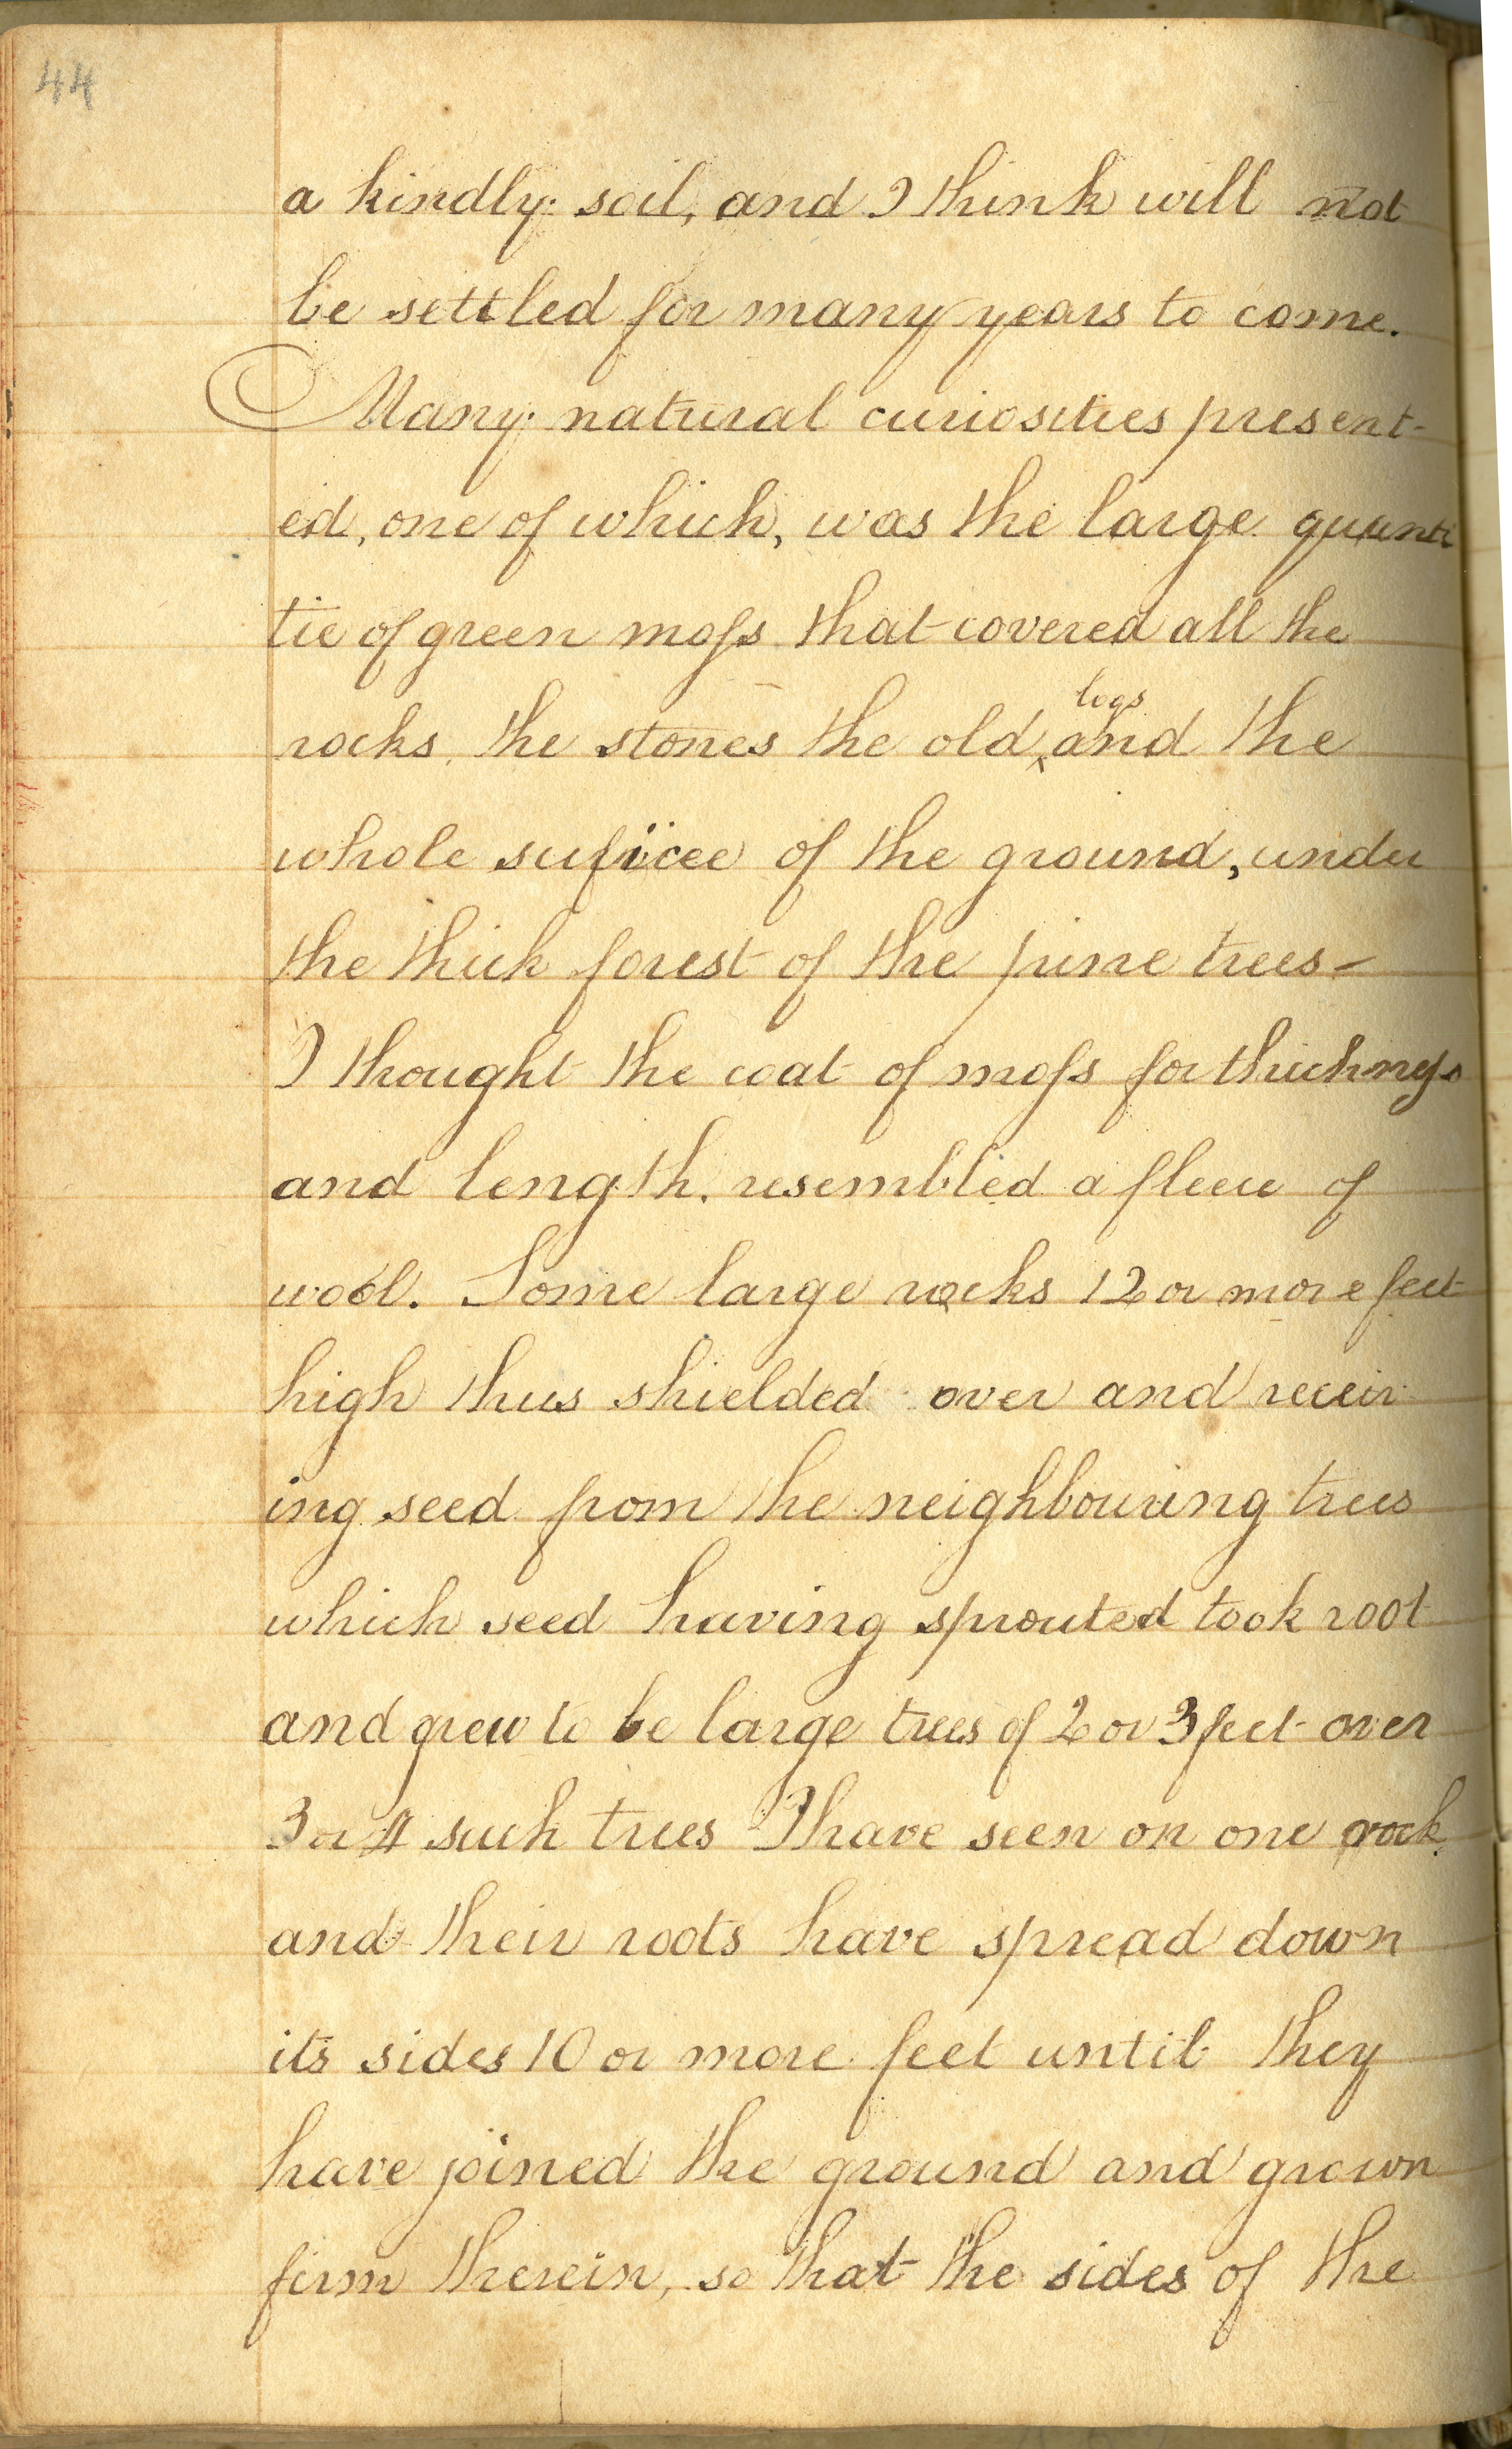 44
a kindly soil, and I think will not
be settled for many years to come.
Many natural curiosities present-
ed, one of which, was the large quanti
tie of green moſs that covered all the
rocks, the stones the old logs and the
whole sufice of the ground, under
the thick forest of the pine trees –
I thought the coat of moſs for thickneſs
and length, resembled a fleece of
wool. Some large rocks 12 or more feet
high thus shielded over and receiv
ing seed from the neighbouring trees
which seed having sprouted took root
and grew to be large trees of 2 or 3 feet over
3 or 4 such trees I have seen on one rock
and their roots have spread down
its sides 10 or more feet until they
have joined the ground and grown
firm therein, so that the sides of the